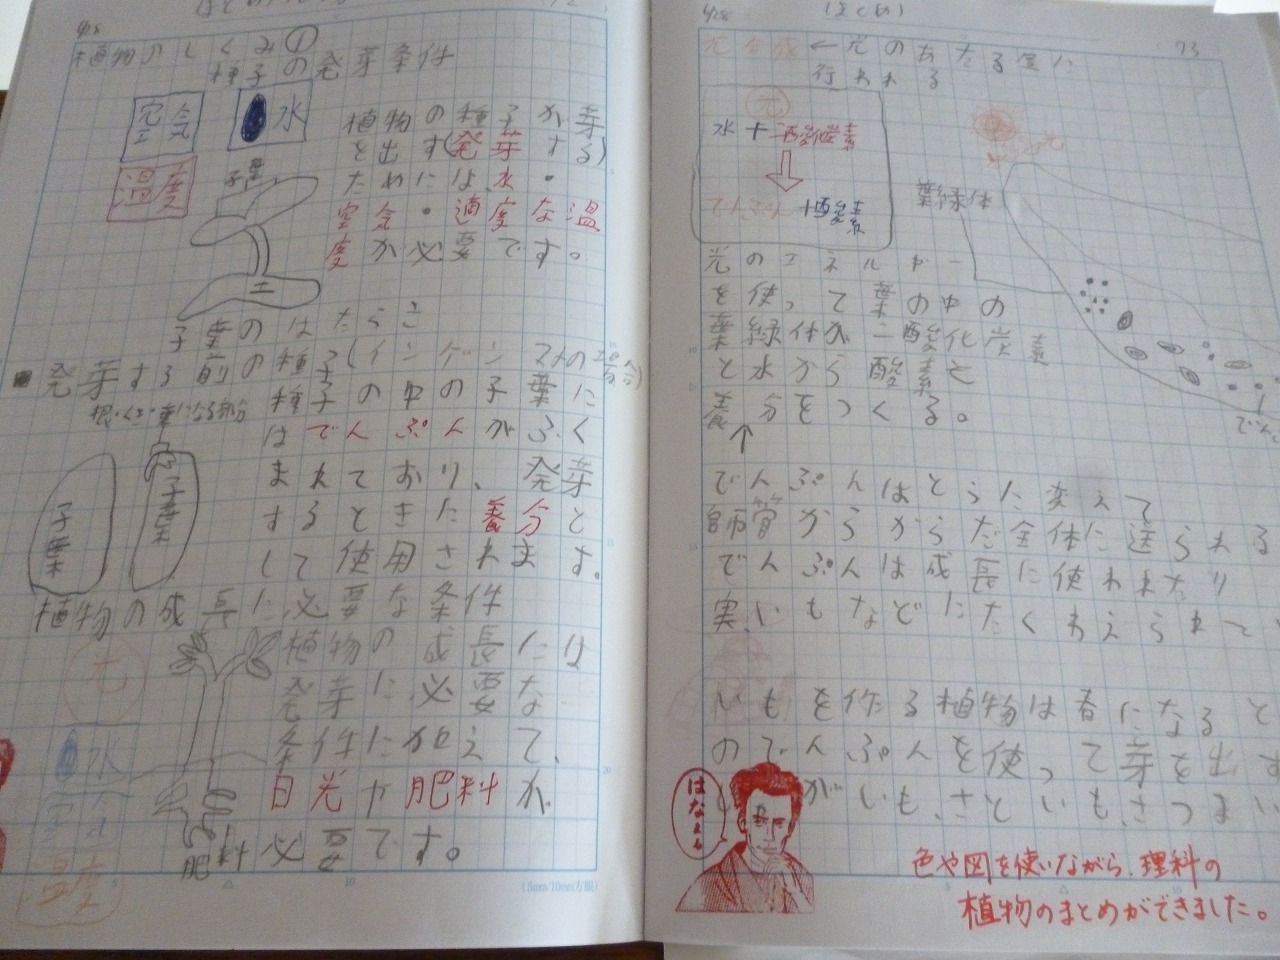 植物のしくみ①
種子の発芽条件
空気
水
温度
植物の種子が芽
を出す(発芽する)
ためには、水・
空気・適度な温
度が必要です。
子葉
土
子葉のはたらき
発芽する前の種子(インゲンマメの
種子の中の子葉に
はでんぷんがふく
まれており、発芽
するときた養分と
して使用されます。
根・くき・葉になる部分
子葉
子葉
植物の成長に必要な条件
植物の成長には
発芽に必要な
条件に加えて、
日光や肥料が
必要です。
光
水
空気
温度
肥料
(5mm/10mm方眼)
4/28
(まとめ)
73
光合成←光のあたる
行われる
光
水+二酸化炭素
でんぷん+酸素
葉緑体
光のエネルギー
を使って葉の中の
葉緑体が二酸化炭素
と水から酸素と
養分をつくる。
でんぷんはとうに変えて
師管からからだ全体に送られる
でんぷんは成長に使われたり
実、いもなどにたくわえられて
いもを作る植物は春になると
のでんぷんを使って芽を出す
がいも、さといも、さつまい
はなまる
色や図を使いながら、理科の
植物のまとめができました。